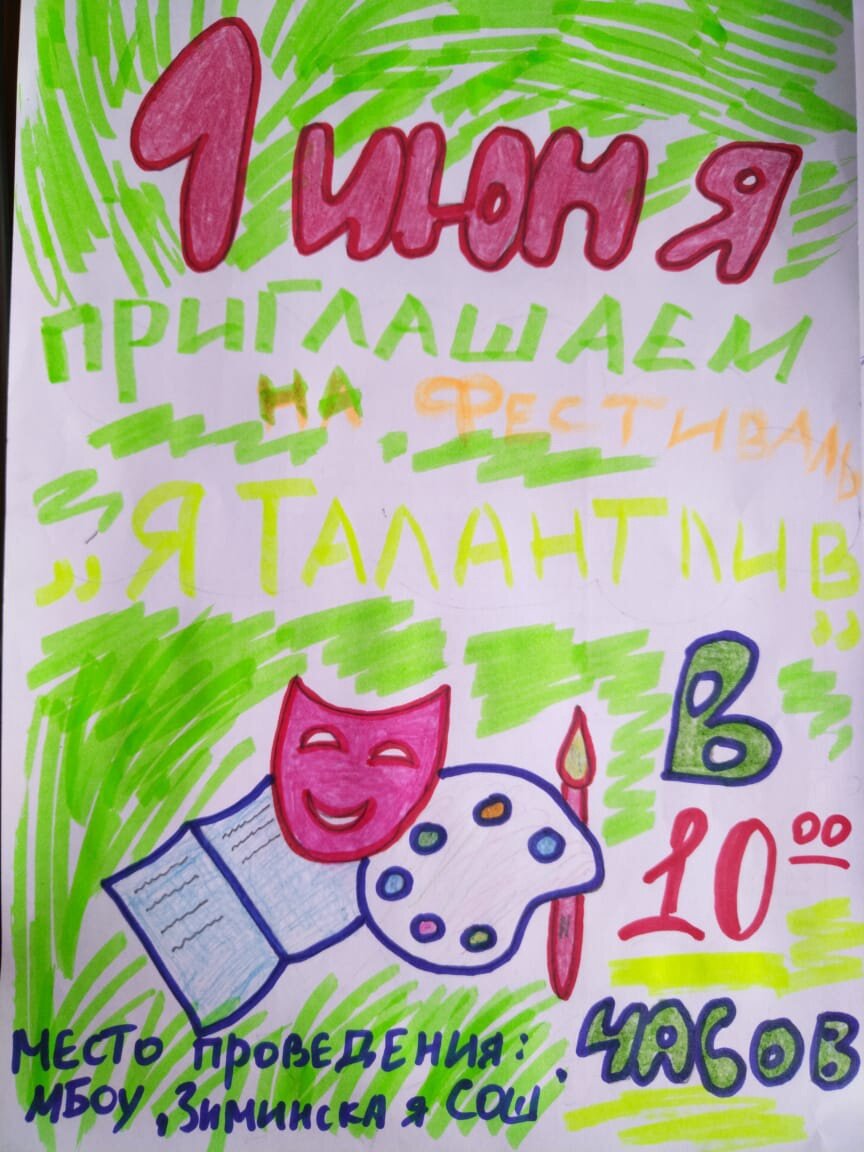 1 июня
ПРИГЛАШАЕМ
НА ФЕСТИВАЛЬ
„Я ТАЛАНТЛИВ"
В
10⁰⁰
ЧАСОВ
МЕСТО ПРОВЕДЕНИЯ:
МБОУ „Зиминская СОШ"